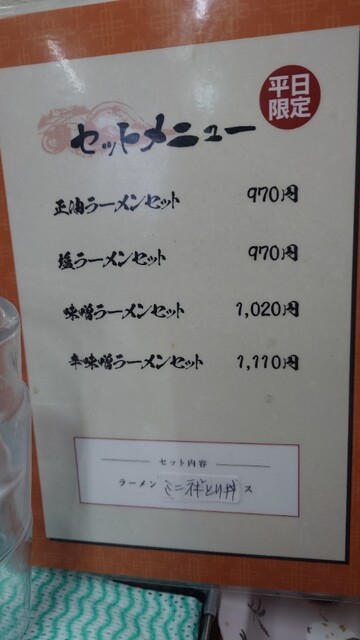 平日
限定
セットメニュー
正油ラーメンセット 970円
塩ラーメンセット 970円
味噌ラーメンセット 1,020円
辛味噌ラーメンセット 1,110円
セット内容
ラーメン ミニ ス